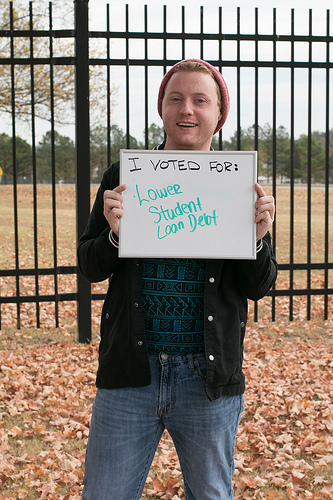 I VOTED FOR:
Lower
Student
Loan Debt